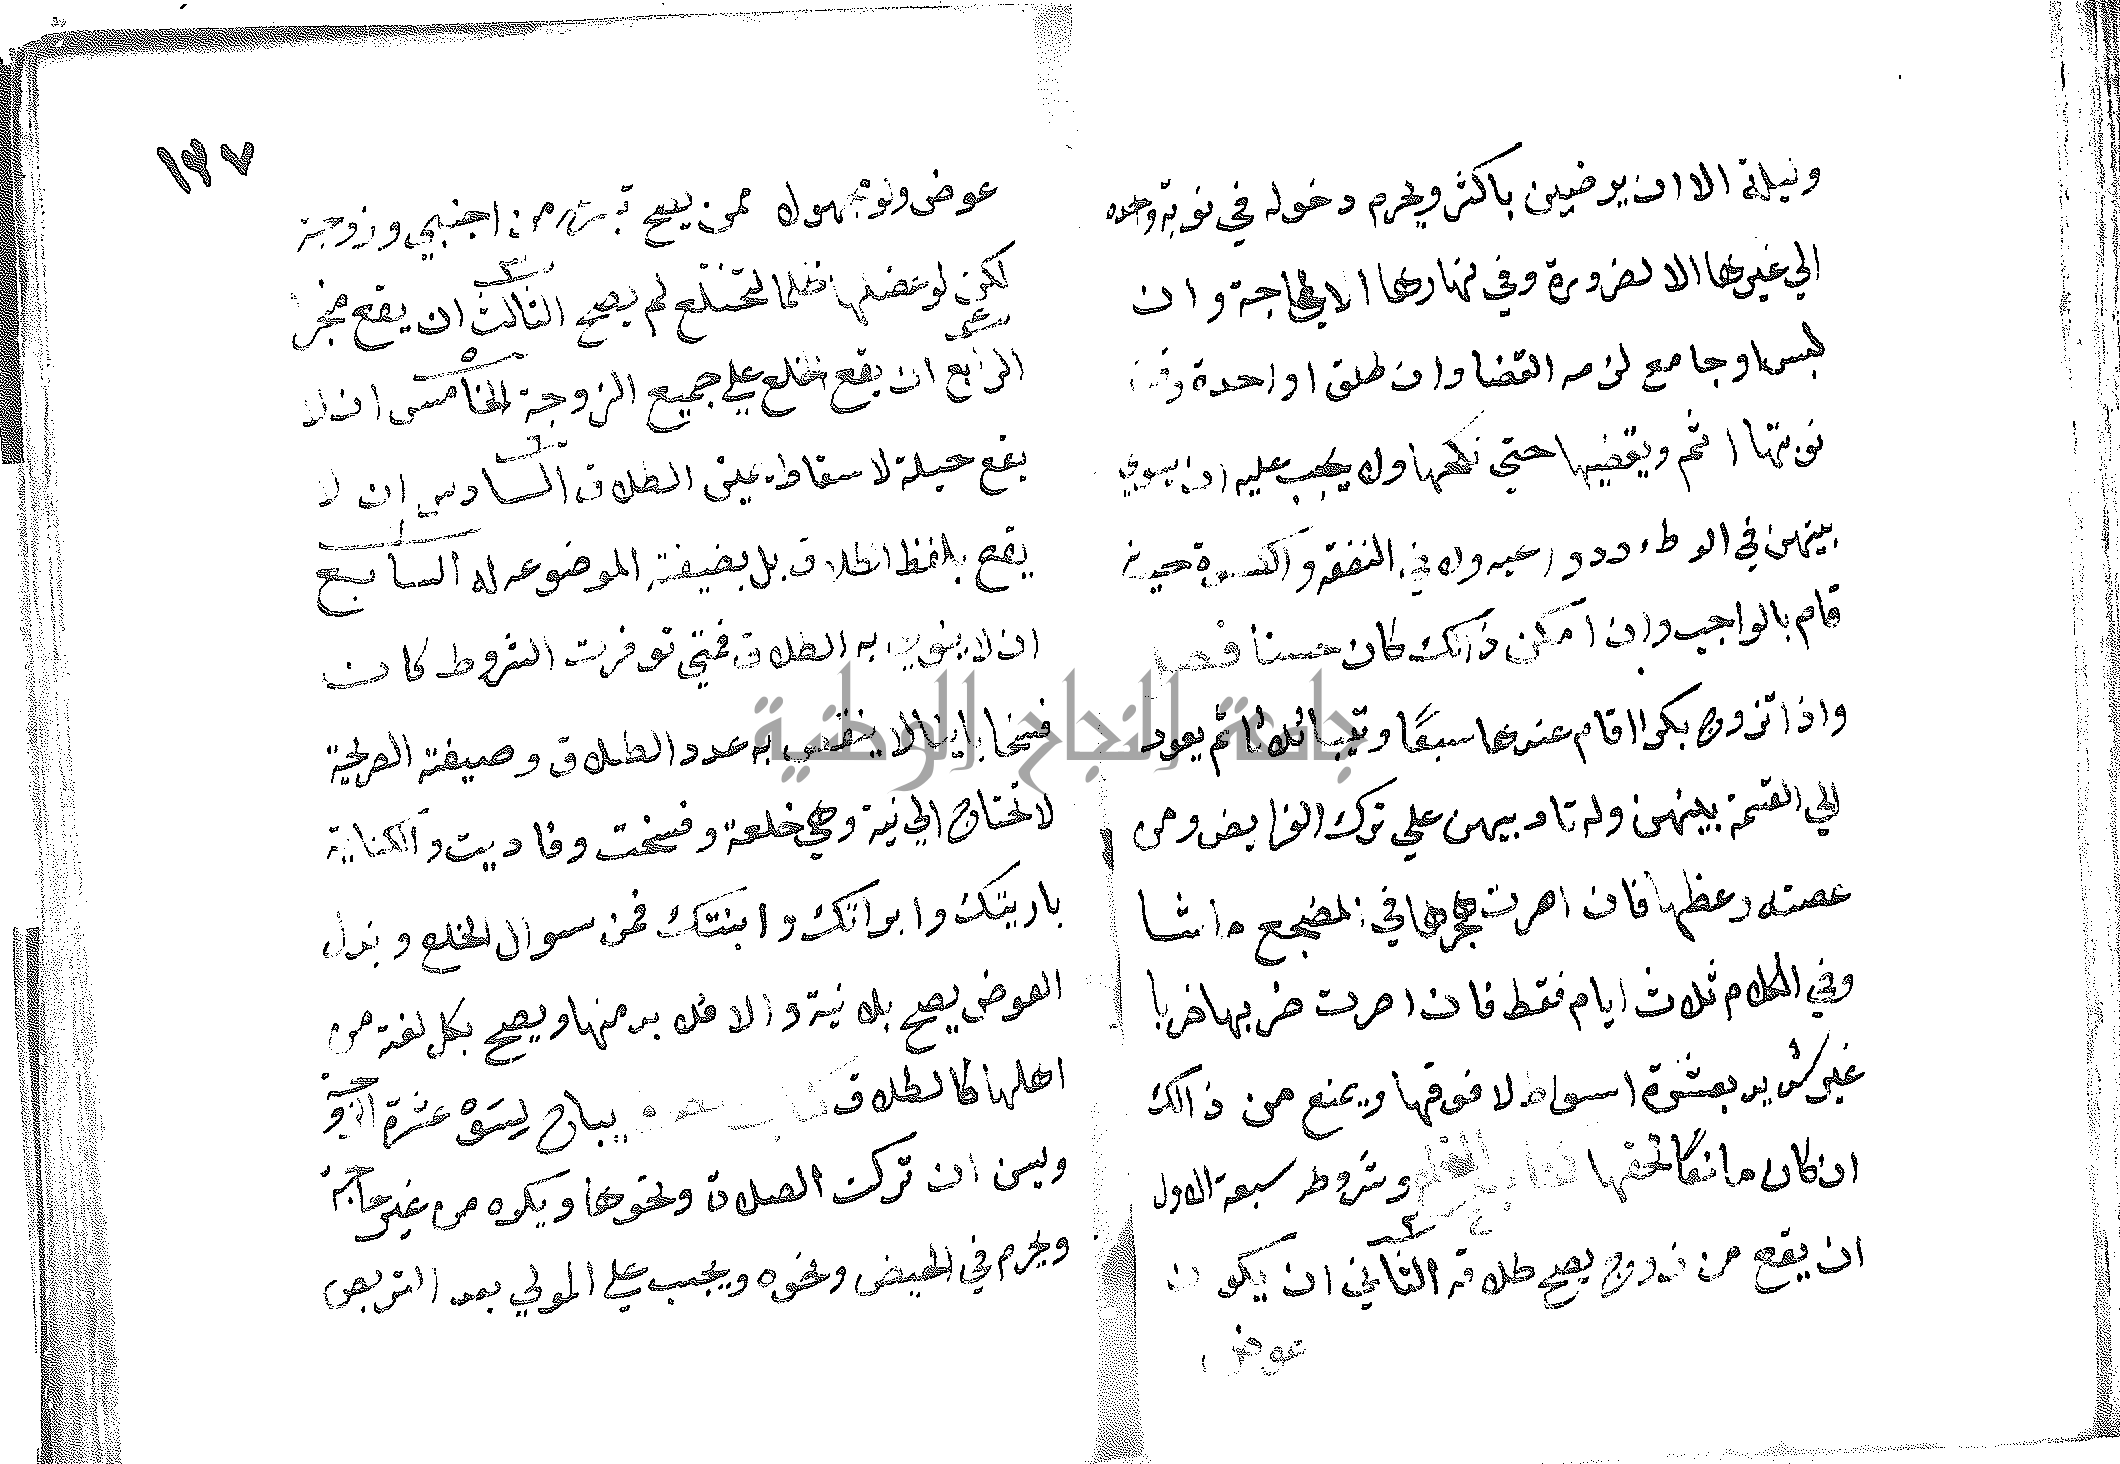 وليلة الا ان يرضين باكثر ويحرم دخوله في نوبة واحده
الي غيرها الا لضرورة وفي نهارها الا لحاجة وان
لبس او جامع لزمه القضا وان طلق واحدة وقت
نوبتها اثم ويقضيها حتي نكحها ولا يجب عليه ان يسوي
بينهن في الوطء ودواعيه ولا في النفقة والكسوة حيث
قام بالواجب وان امكن ذالك كان حسنا فصل
واذا تزوج بكرا اقام عندها سبعًا وثيبا ثلاثا ثم يعود
الي القسمة بينهن وله تاديبهن علي ترك الفرايض ومن
عصته وعظها فان اصرت هجرها في المضجع ما شا
وفي الكلام ثلاث ايام فقط فان اصرت ضربها ضربا
غير شديد بعشرة اسواط لا فوقها ويمنع من ذالك
ان كان مانعًا لحقها كتاب الخلع وشروطه سبعة الاول
ان يقع من زوج يصح طلاقه الثاني ان يكون
عوض
١٣٧
عوض ولو مجهول ممن يصح تبرعه من اجنبي وزوجة
لكن لو عضلها ظلما لتختلع لم يصح الثالث ان يقع منجزا
الرابع ان يقع الخلع علي جميع الزوجة الخامس ان لا
يقع حيلة لاسقاط يمين الطلاق السادس ان لا
يقع بلفظ الطلاق بل بصيغته الموضوعه له السابع
ان لا ينوي به الطلاق فمتي توفرت الشروط كان
فسخا باينا لا ينقص به عدد الطلاق وصيغته الصريحة
لا تحتاج الي نية وهي خلعة وفسخت وفاديت والكناية
باريتك وابراتك وابنتك فمن سوال الخلع وبذل
العوض يصح بلا نية والا فلا بد منها ويصح بكل لغة من
اهلها كالطلاق كتاب يباح لسوْ عشرة الزوجة
وليس ان تركت الصلاة ونحوها ويكره من غير حاجة
ويحرم في الحيض ونحوه ويجب علي المولي بعد التربص
جامعة النجاح الوطنية